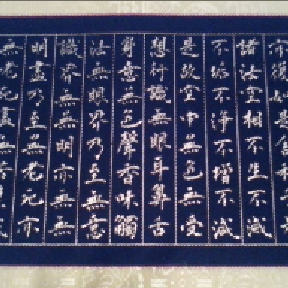 諸法空相不生不滅
不垢不淨不增不減
是故空中無色無受
想行識無眼耳鼻舌
身意無色聲香味觸
法無眼界乃至無意
識界無無明亦無無
明盡乃至無老死亦
無老死盡無苦集滅